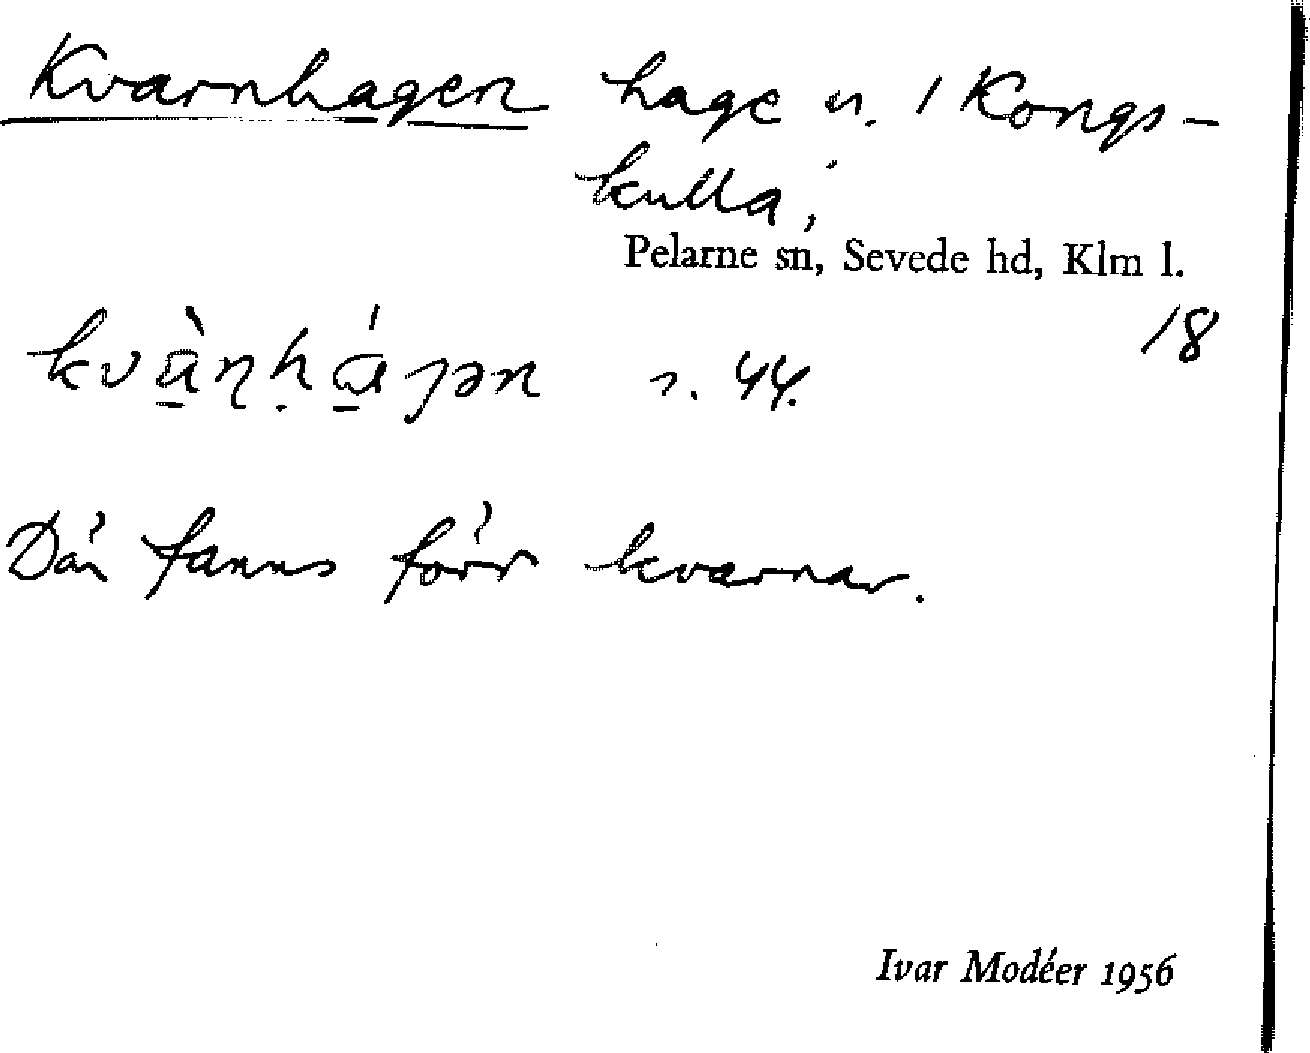 Kvarnhagen hage n. 1 Kongs-
kulla,
Pelarne sn, Sevede hd, Klm l.
18
kvànháɡən s. 44.
Där fanns förr kvarnar.
Ivar Modéer 1956